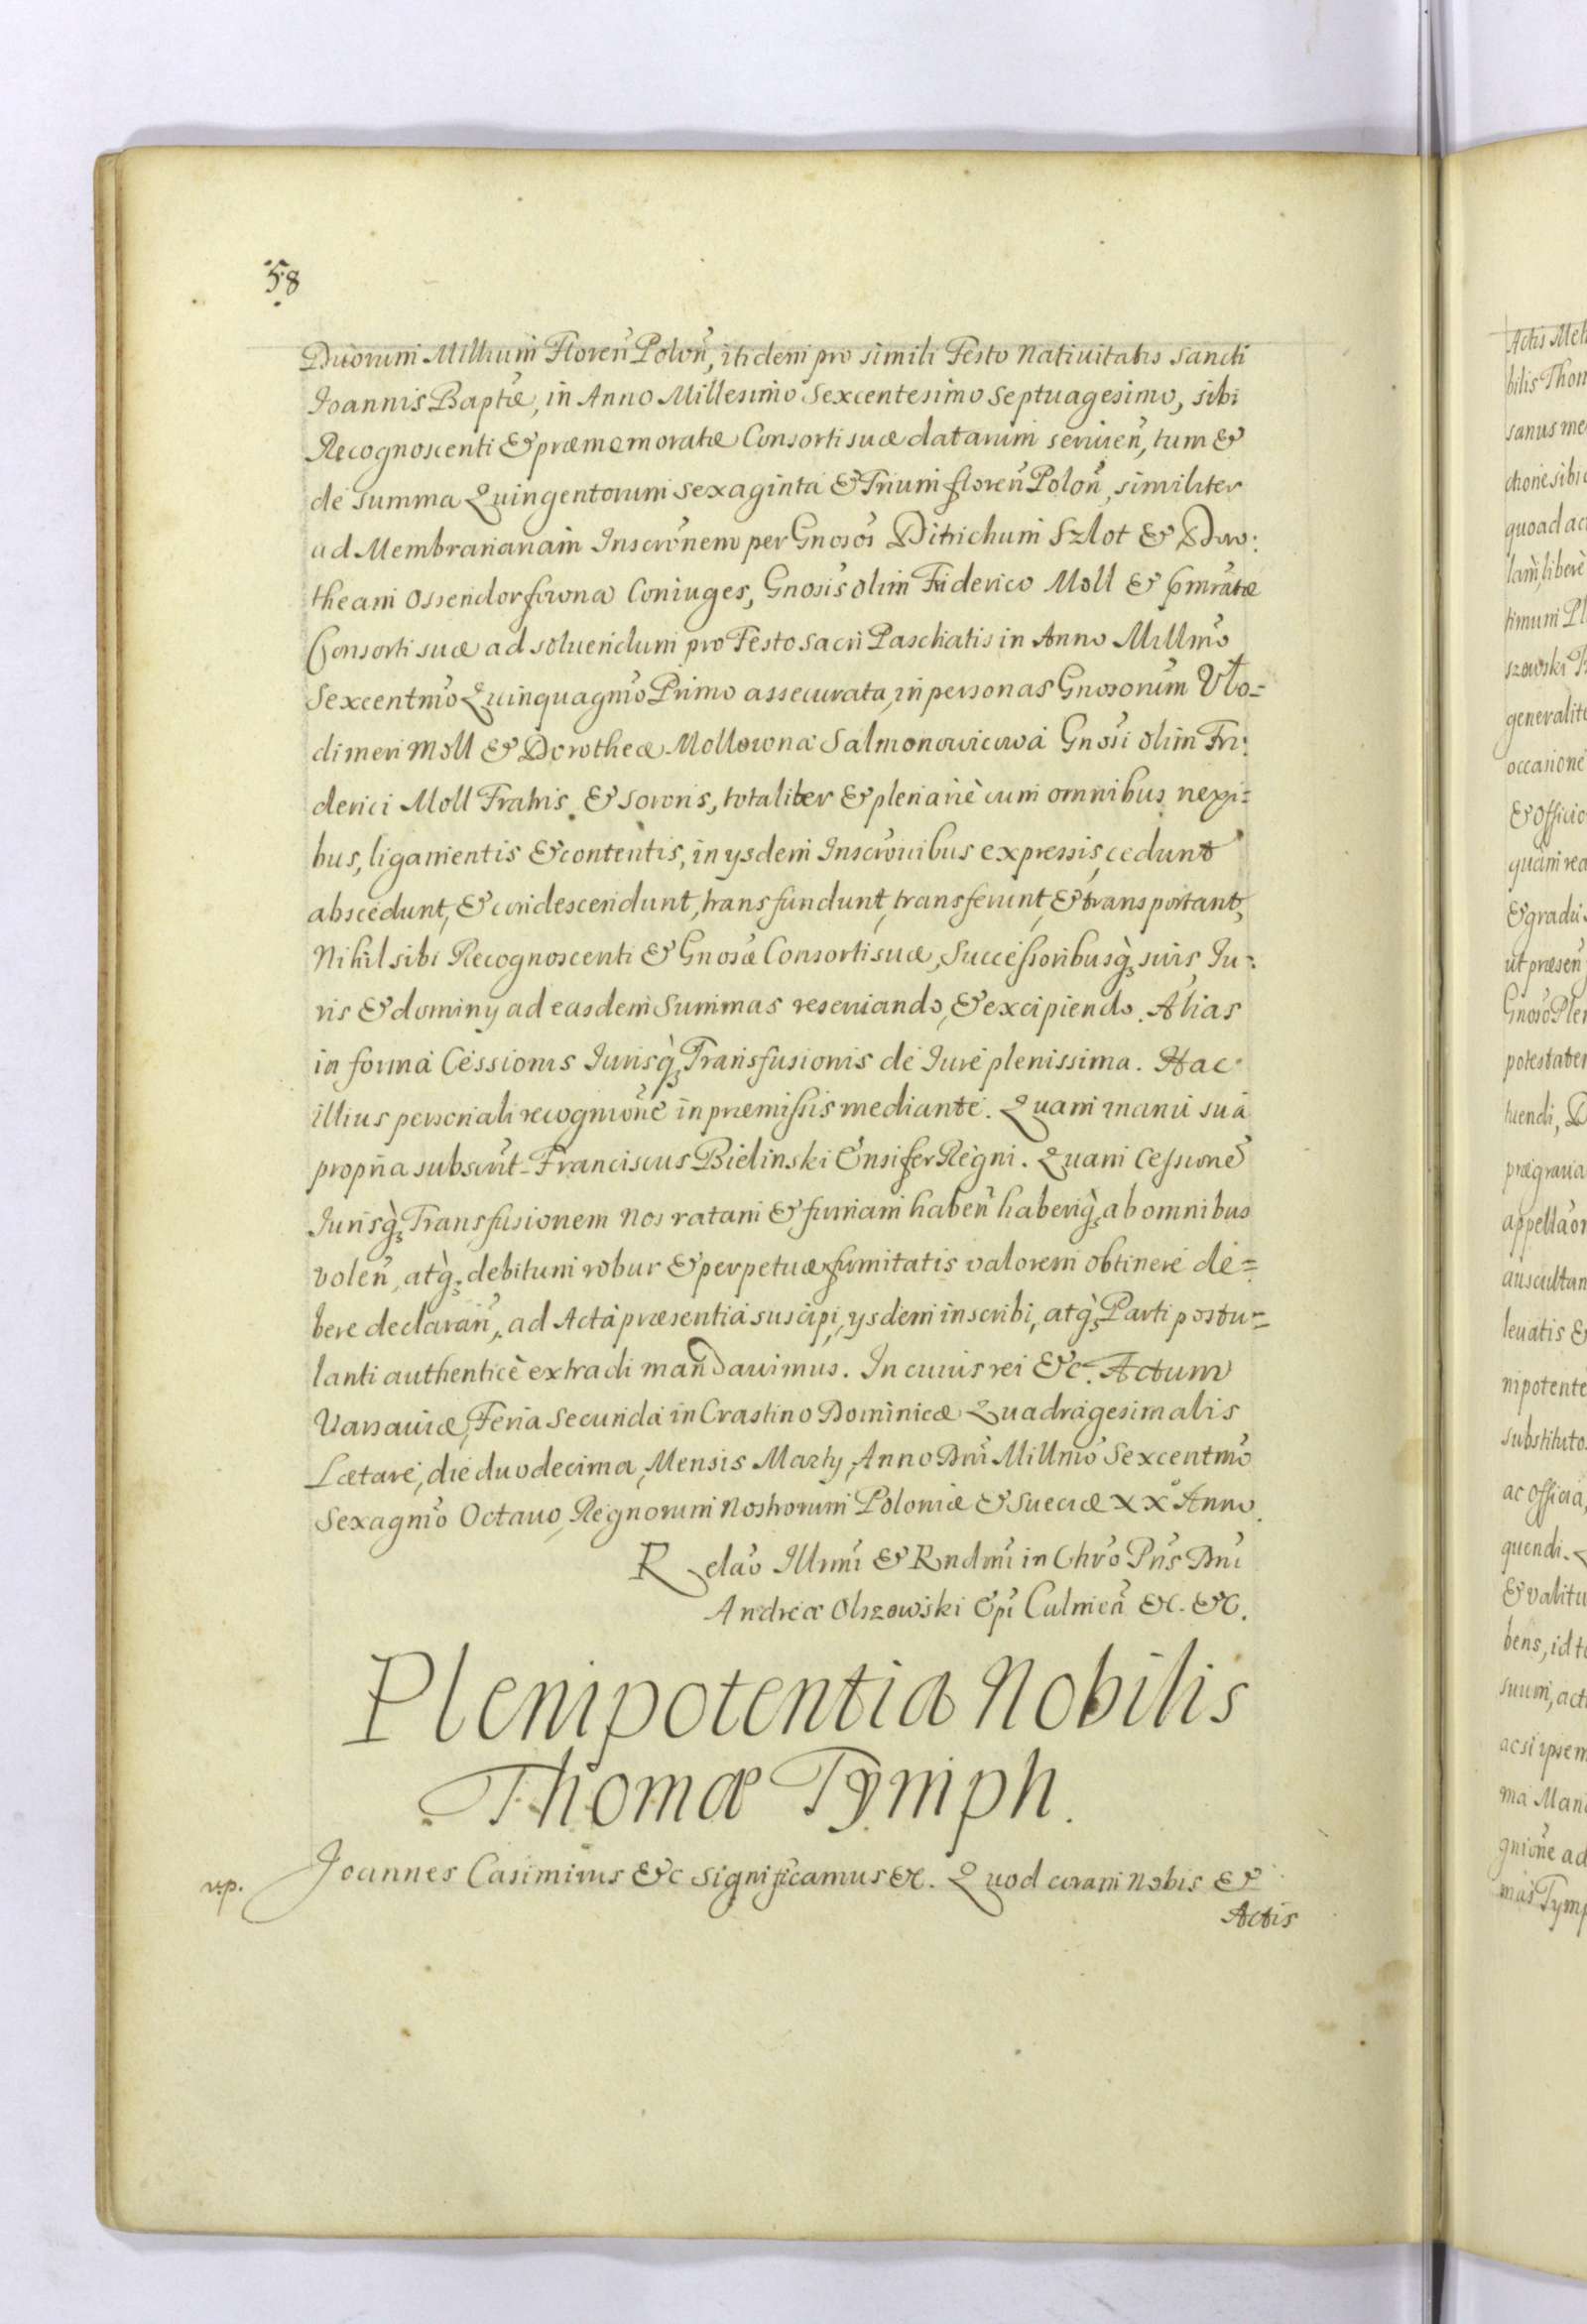 58
Duorum Millium Floreñ Poloñ, itidem pro simili Festo Natiuitatis Sancti
Joannis Baptæ, in Anno Millesimo Sexcentesimo Septuagesimo, sibi
Recognoscenti & præmemoratæ Consorti suæ datarum seruieñ, tum &
de summa Quingentorum sexaginta & Trium floreñ Poloñ, similiter
ad Membranariam Inscrõnem per Gnosos Ditrichum Szlot & Doro:
theam Ossendorfowna Coniuges, Gnosis olim Friderico Moll & Gmratæ
Consorti suæ ad soluendum pro Festo Sacri Paschatis in Anno Millmo
Sexcentmo Quinquagmo Primo assecurata, in personas Gnosorum Vlo=
dimeri Moll & Dorotheæ Mollowna Salmonowicowa Gnosi olim Fri:
derici Moll Fratris & sororis, totaliter & plenariè cum omnibus nexi=
bus, ligamentis & contentis, in ysdem Inscrõnibus expressis, cedunt
abscedunt, & condescendunt, transfundunt, transferunt, & transportant,
Nihil sibi Recognoscenti & Gnosæ Consorti suæ, Successoribusq; suis Ju=
ris & dominy ad easdem Summas reseruando, & excipiendo. Alias
in forma Cessionis Jurisq; Transfusionis de Jure plenissima. Hac
illius personali recognione in præmissis mediante. Quam manu sua
propria subscrit Franciscus Bielinski Ensifer Regni. Quam Cessione
Jurisq; Transfusionem Nos ratam & firmam habeñ haberiq; ab omnibus
voleñ, atq; debitum robur & perpetuæ firmitatis valorem obtinere de=
bere declarañ, ad Acta præsentia suscipi, ysdem inscribi, atq; Parti postu=
lanti authenticè extradi mandauimus. In cuius rei &c. Actum
Varsauiæ, Feria Secunda in Crastino Dominicæ Quadragesimalis
Lætare, die duodecima, Mensis Marty, Anno Dni Millmo Sexcentmo
Sexagmo Octauo, Regnorum Nostrorum Poloniæ & Sueciæ XX Anno.
Relao Illmi & Rndmi in Chro Pris Dni
Andreæ Olszowski Epi Culmeñ &c. &c.
Plenipotentia Nobilis
Thomæ Tymph.
Joannes Casimirus &c Significamus &c. Quod coram Nobis &
Actis